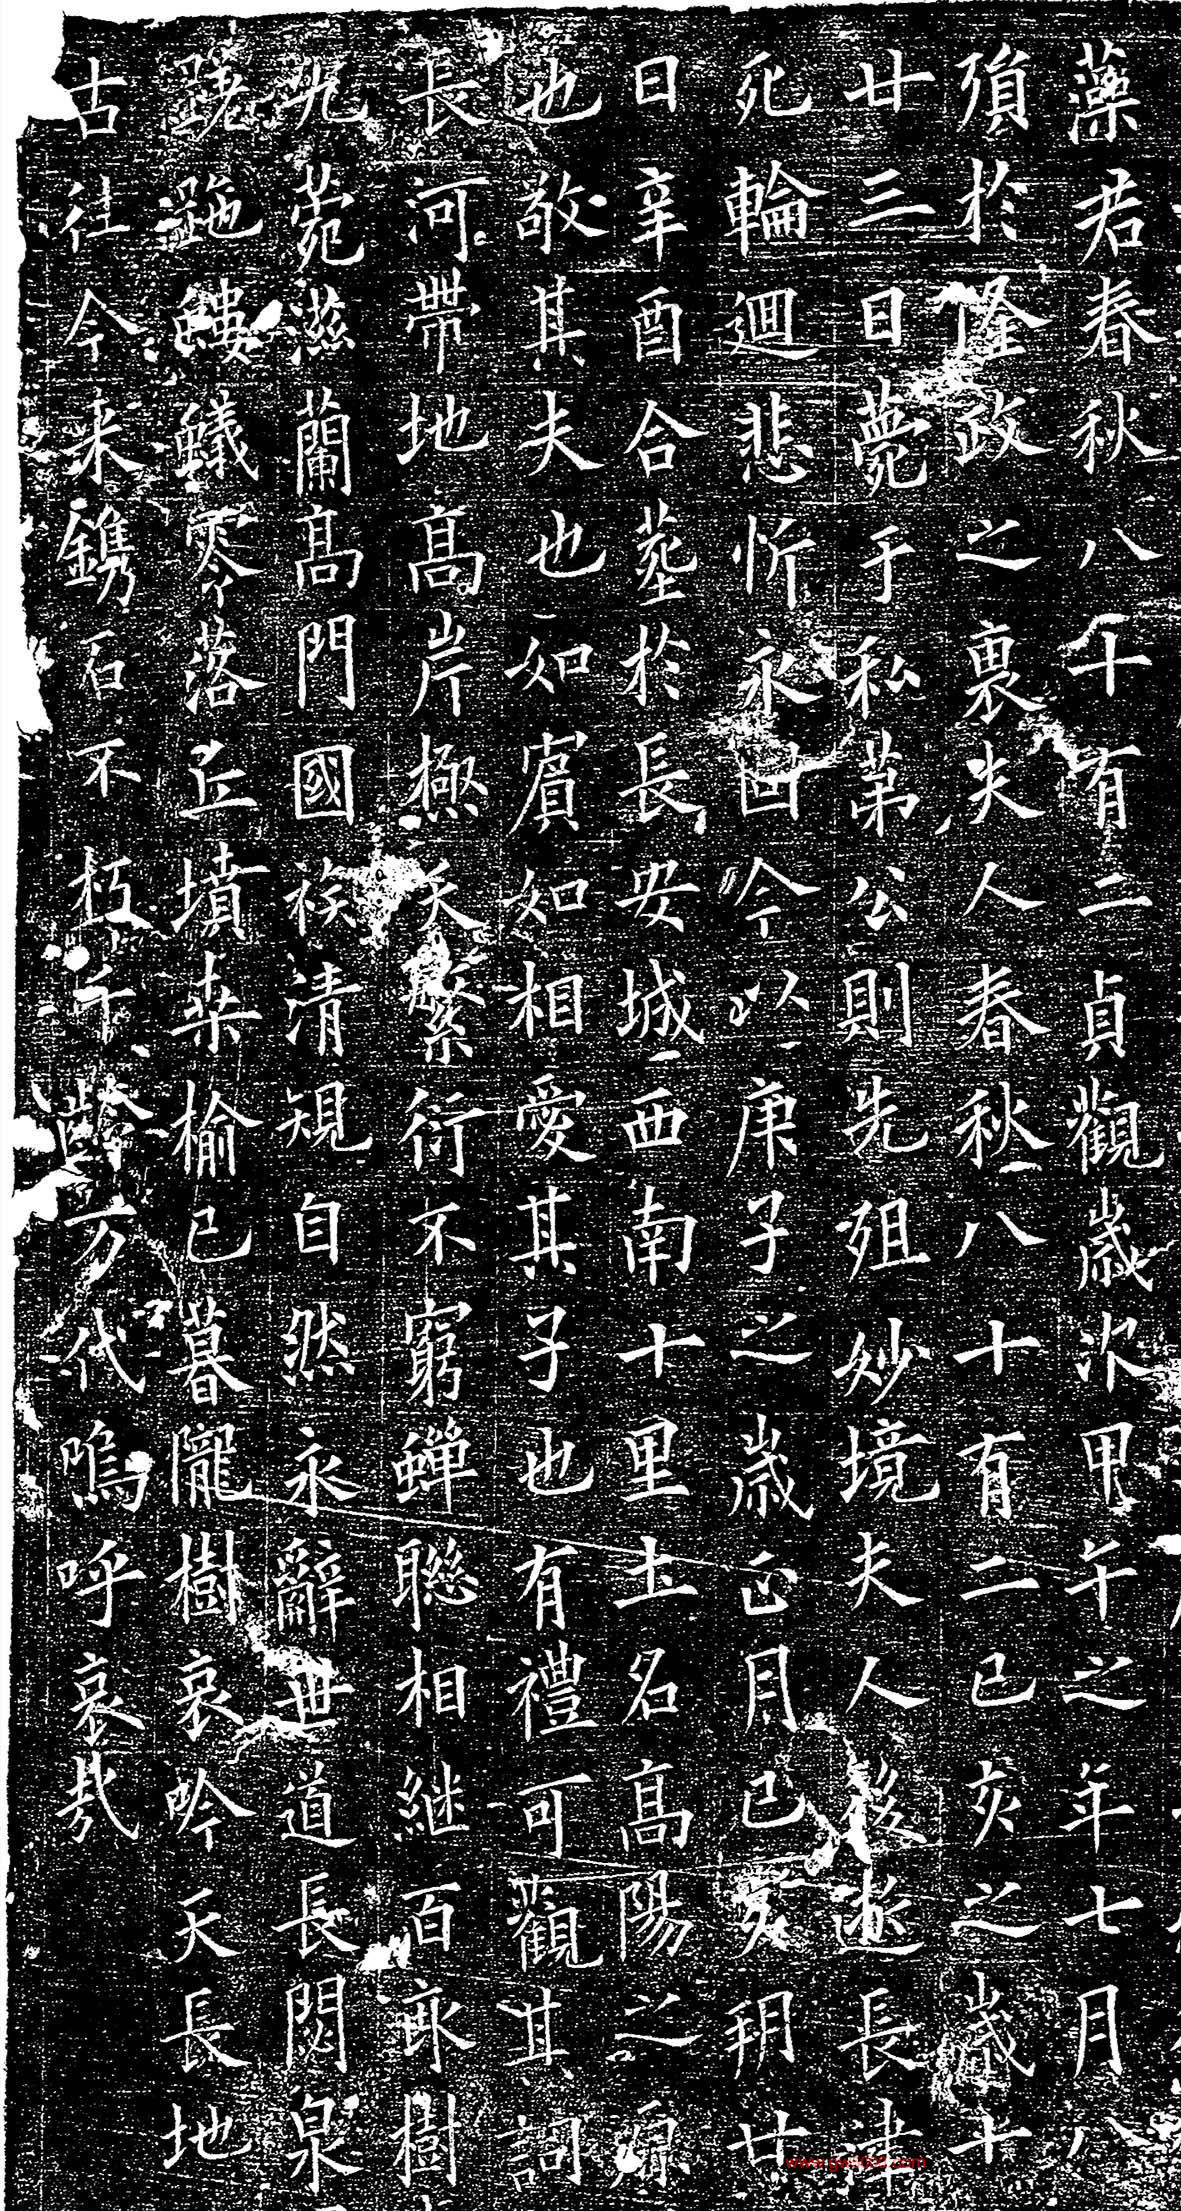 藻君春秋八十有二貞觀歲次甲午之年七月八
殞於隆政之裏夫人春秋八十有二已亥之歲十
廿三日薨于私第公則先殂妙境夫人後逝長津
死輪迴悲忻永畢今以庚子之歲正月已亥朔廿
日辛酉合葬於長安城西南十里土名高陽之原
也敬其夫也如賓如相愛其子也有禮可觀其詞
長河帶地高岸極天繁衍不窮蟬聮相継百郡樹
九菀滋蘭高門國族清規自然永辭世道長閟泉
蹺跎螻蟻零落丘墳桒榆已暮隴樹哀吟天長地
古往今来鐫石不朽千齡万代嗚呼哀㢤
www.gwshuc.com